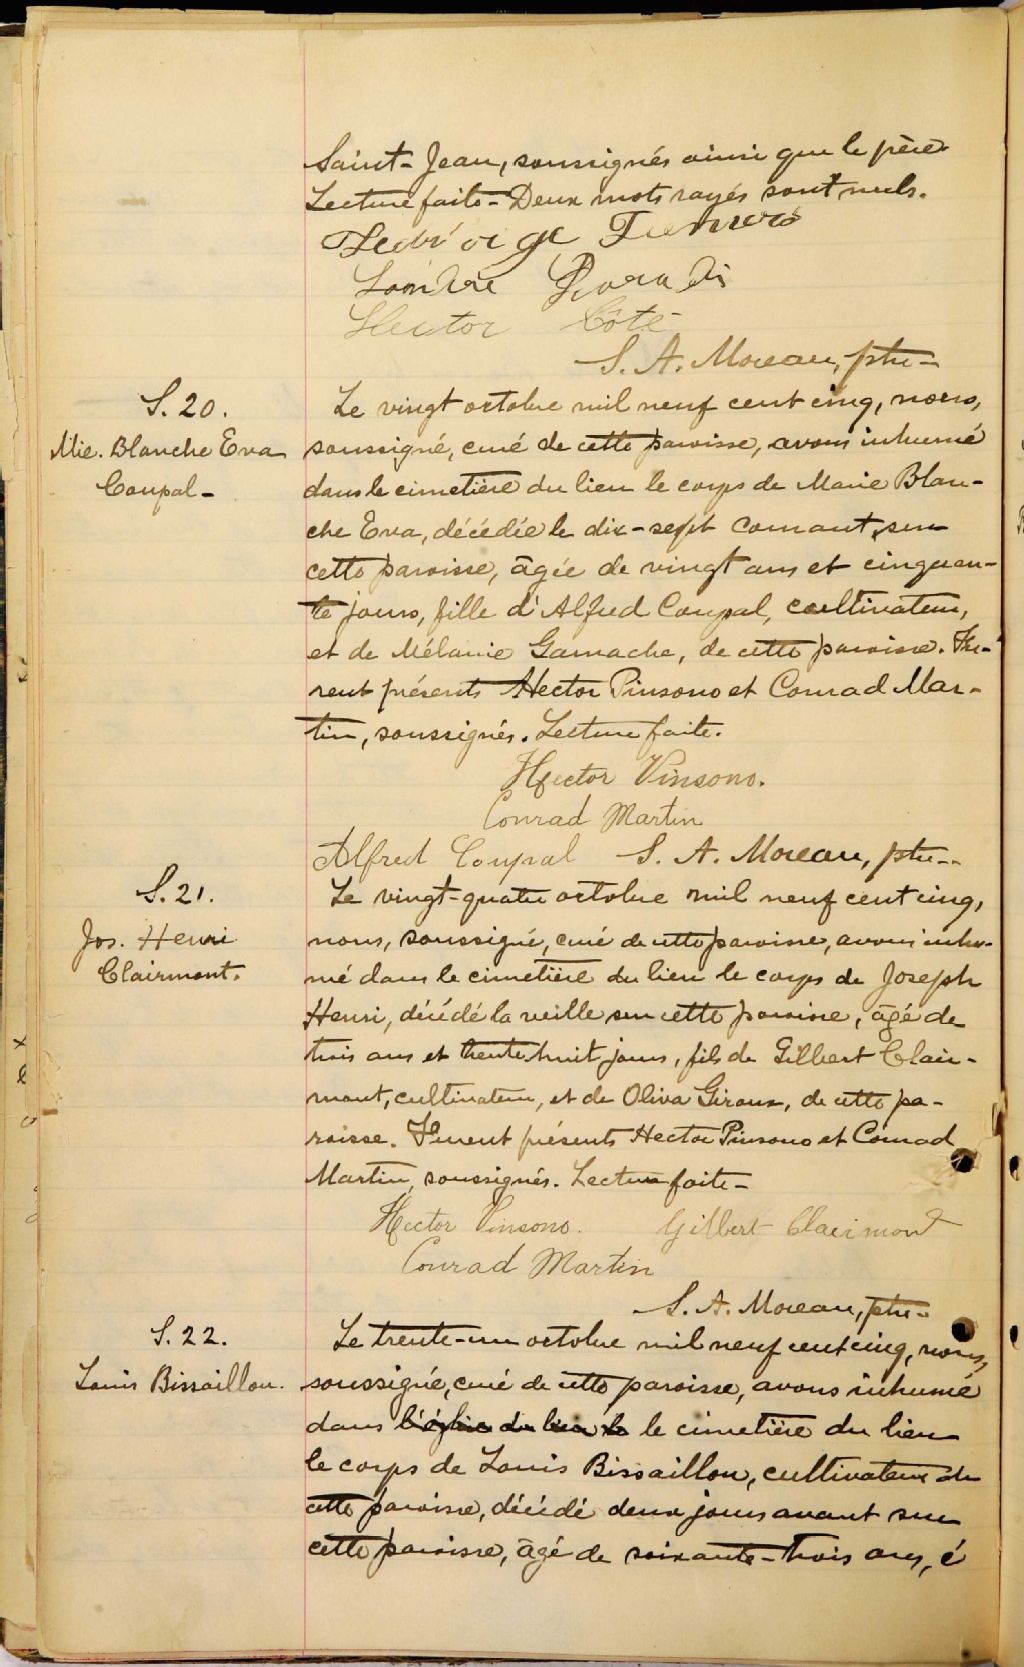 Saint-Jean, soussignés ainsi que le père
Lecture faite - Deux mots rayés sont nuls.
Hector Côté
S. A. Moreau, ptre -
S. 20.
Mie. Blanche Eva
Coupal -
Le vingt octobre mil neuf cent cinq, nous,
soussigné, curé de cette paroisse, avons inhumé
dans le cimetière du lieu le corps de Marie Blan-
che Eva, décédée le dix-sept courant, sur
cette paroisse, âgée de vingt ans et cinquan-
te jours, fille d'Alfred Coupal, cultivateur,
et de Mélanie Gamache, de cette paroisse. Fu-
rent présents Hector Pinsono et Conrad Mar-
tin, soussignés. Lecture faite.
Hector Pinsono.
Conrad Martin
Alfred Coupal S. A. Moreau, ptre -
S. 21.
Jos. Henri
Clairmont.
Le vingt-quatre octobre mil neuf cent cinq,
nous, soussigné, curé de cette paroisse, avons inhu-
mé dans le cimetière du lieu le corps de Joseph
Henri, décédé la veille sur cette paroisse, âgé de
trois ans et trente-huit jours, fils de Gilbert Clair-
mont, cultivateur, et de Oliva Giroux, de cette pa-
roisse. Furent présents Hector Pinsono et Conrad
Martin, soussignés. Lecture faite -
Hector Pinsono. Gilbert Clairmont
Conrad Martin
S. A. Moreau, ptre -
S. 22.
Louis Bissaillon.
Le trente-un octobre mil neuf cent cinq, nous,
soussigné, curé de cette paroisse, avons inhumé
dans l'église du lieu le le cimetière du lieu
le corps de Louis Bissaillon, cultivateur de
cette paroisse, décédé deux jours avant sur
cette paroisse, âgé de soixante-trois ans, é